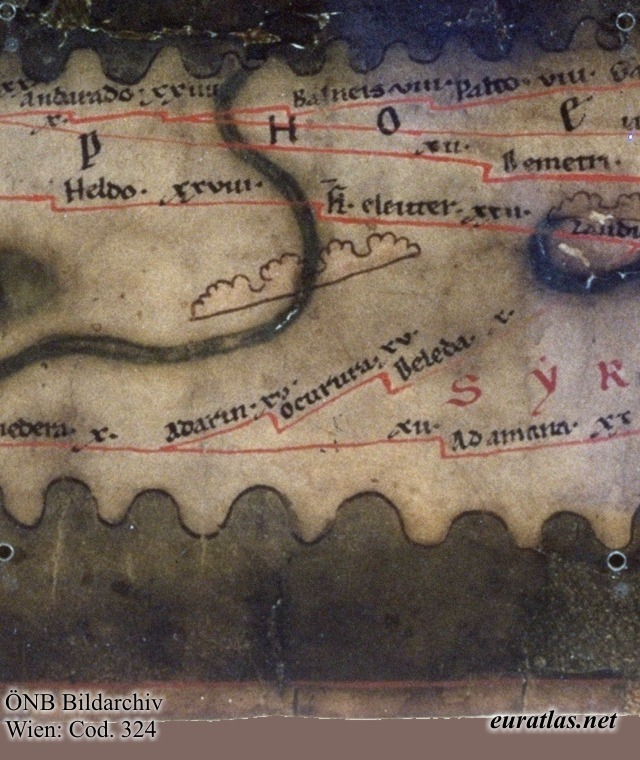 Andarado· xxiiii
Balneis viii· Paltos· viii·
x·
P H O e
xii·
Demetri·
Heldo· xxviii·
F̄l· eleuter· xxii·
Adarin· xv·
ocurura· xv·
Beleda· x·
S Y R
nedera· x·
xii· Ad amana· xx
ÖNB Bildarchiv
Wien: Cod. 324
euratlas.net